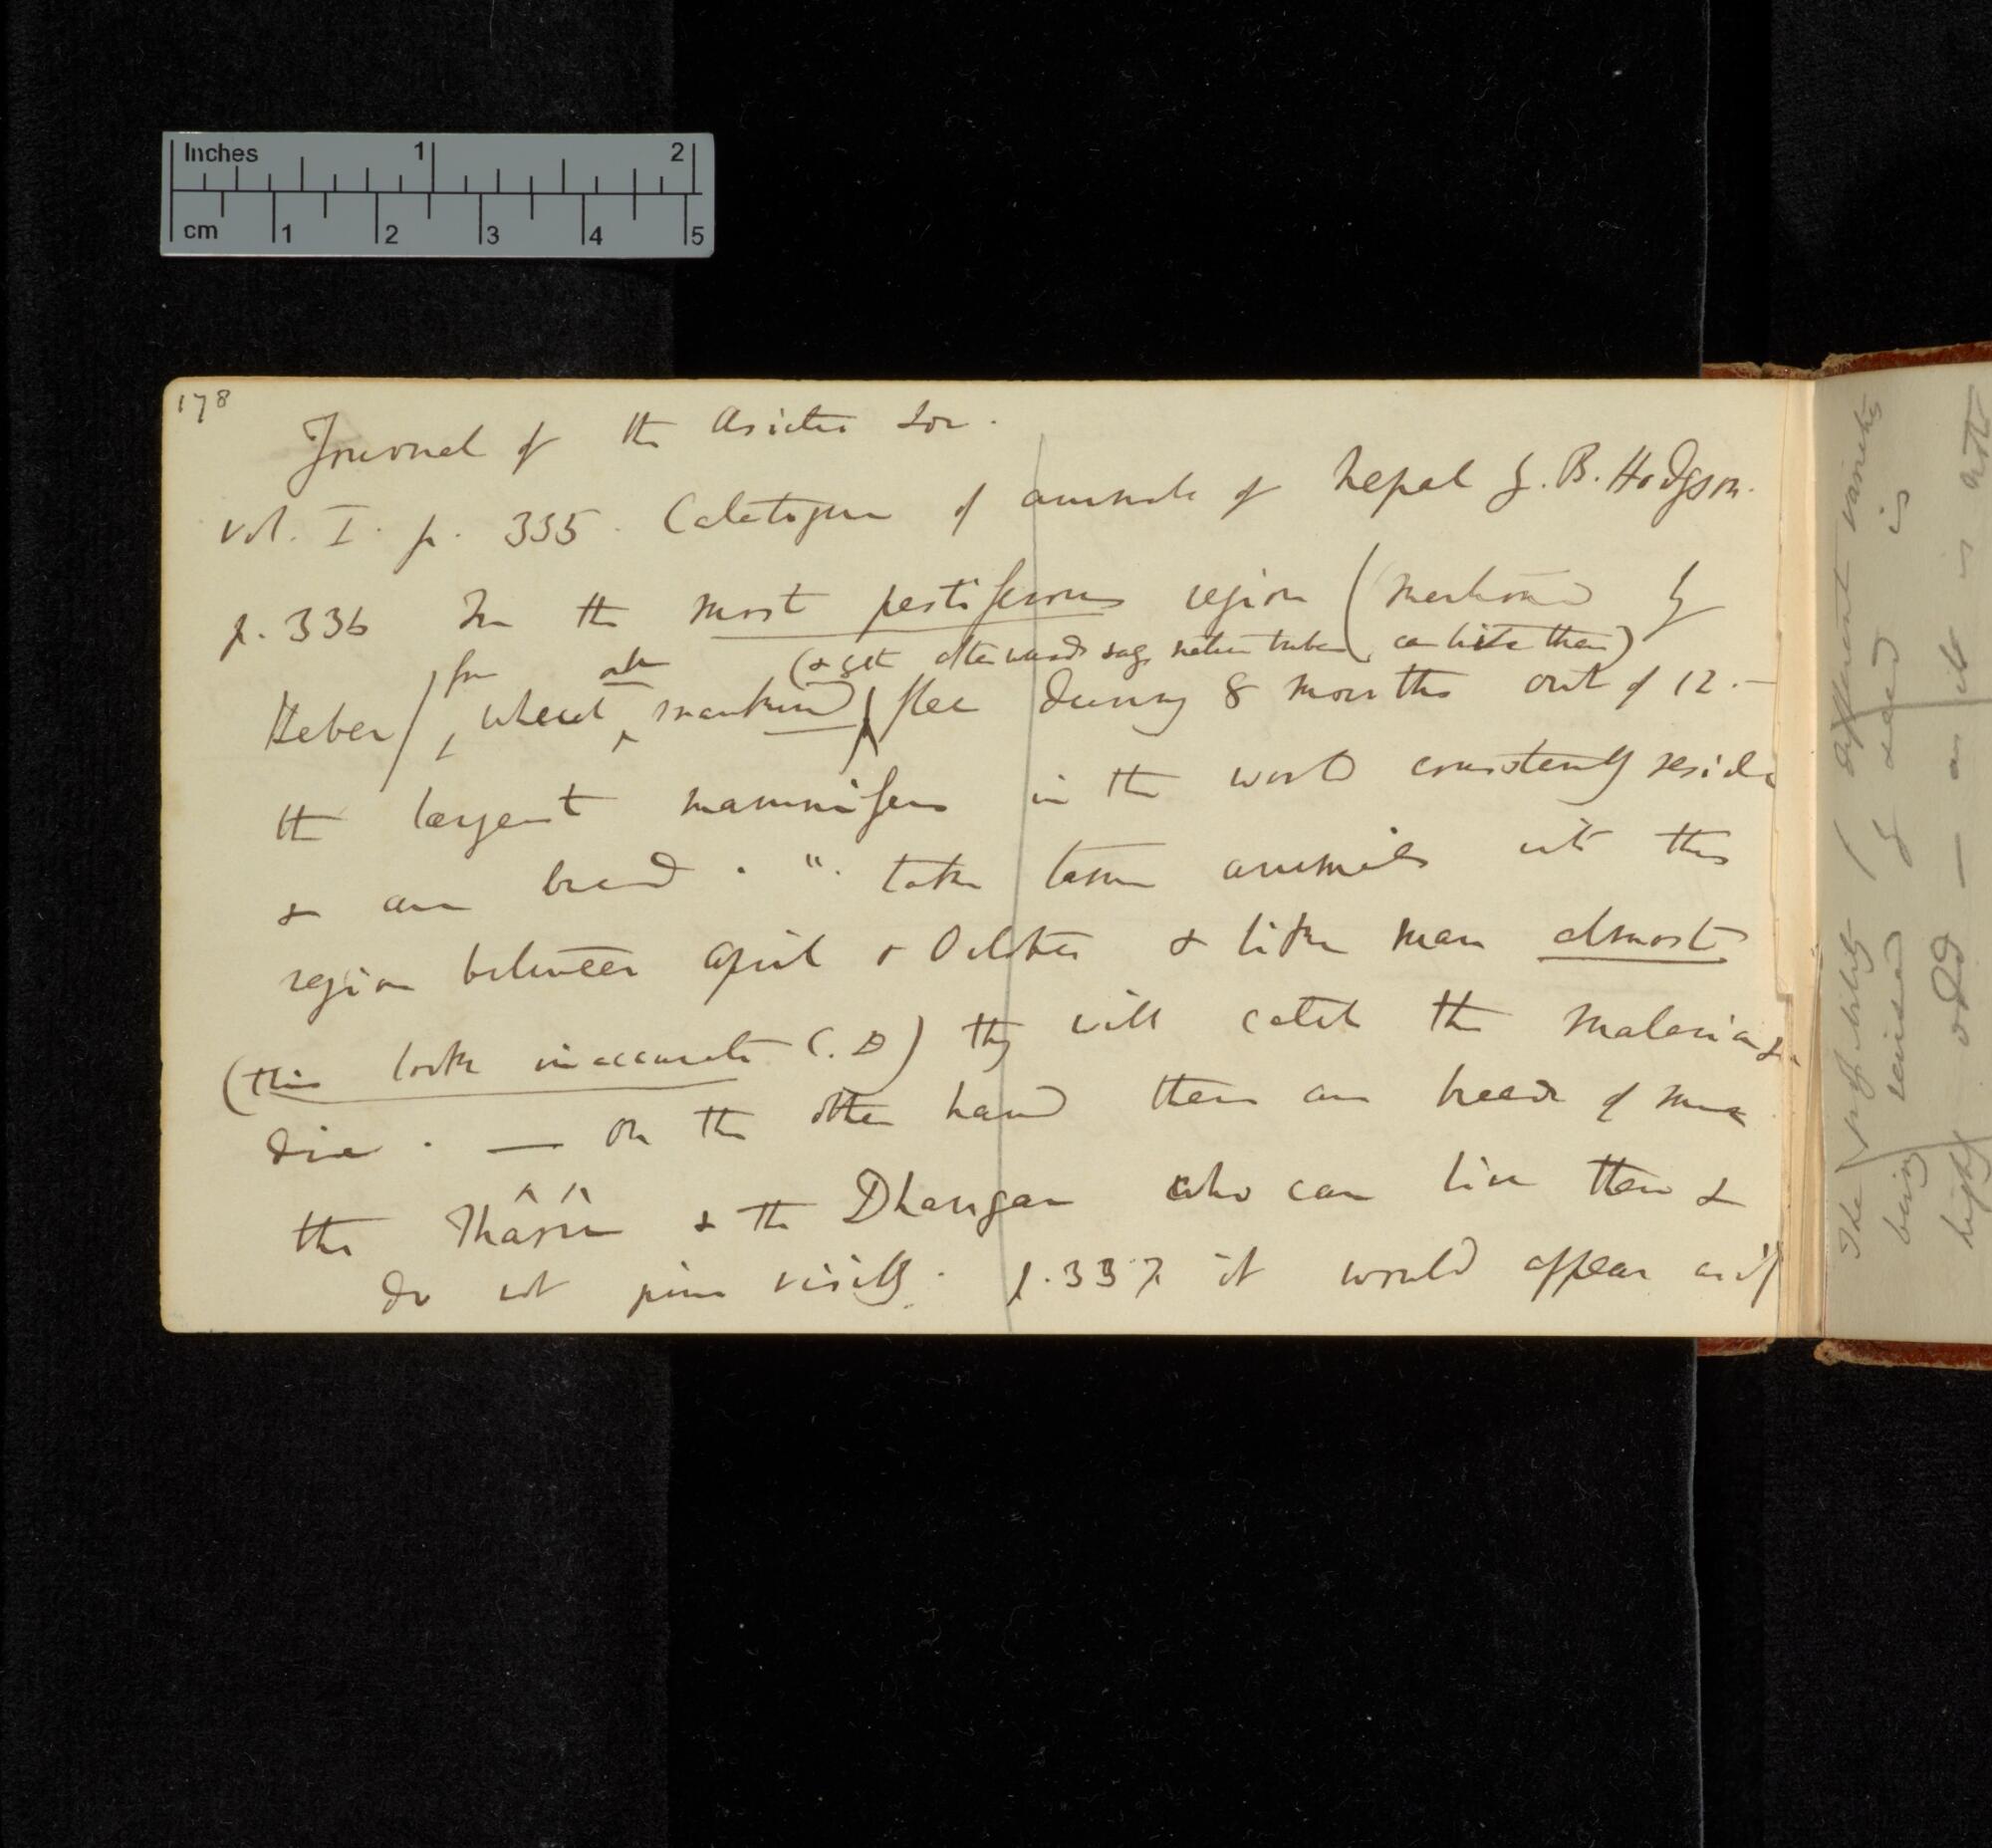 Inches 1 2
cm 1 2 3 4 5
178
Journal of the Asiatic Soc.
vol. I. p. 335. Catalogue of animals of Nepal by. B. Hodgson.
p. 336 In the most pestiferous region (mentioned by
from all (& yet afterwards says native tribes can live there)
Heber) which mankind flee during 8 months out of 12. —
the largest mammifers in the world constantly reside
& are bred. ". take tame animals into this
region between April & October & like man almost
(this looks inaccurate C. D) they will catch the malaria &
die. — On the other hand there are breeds of men
the Thârû & the Dhangar who can live there &
do not pine visibly. p. 337 it would appear as if
The possibility of different varieties
being raised by seed is
highly odd — as it is